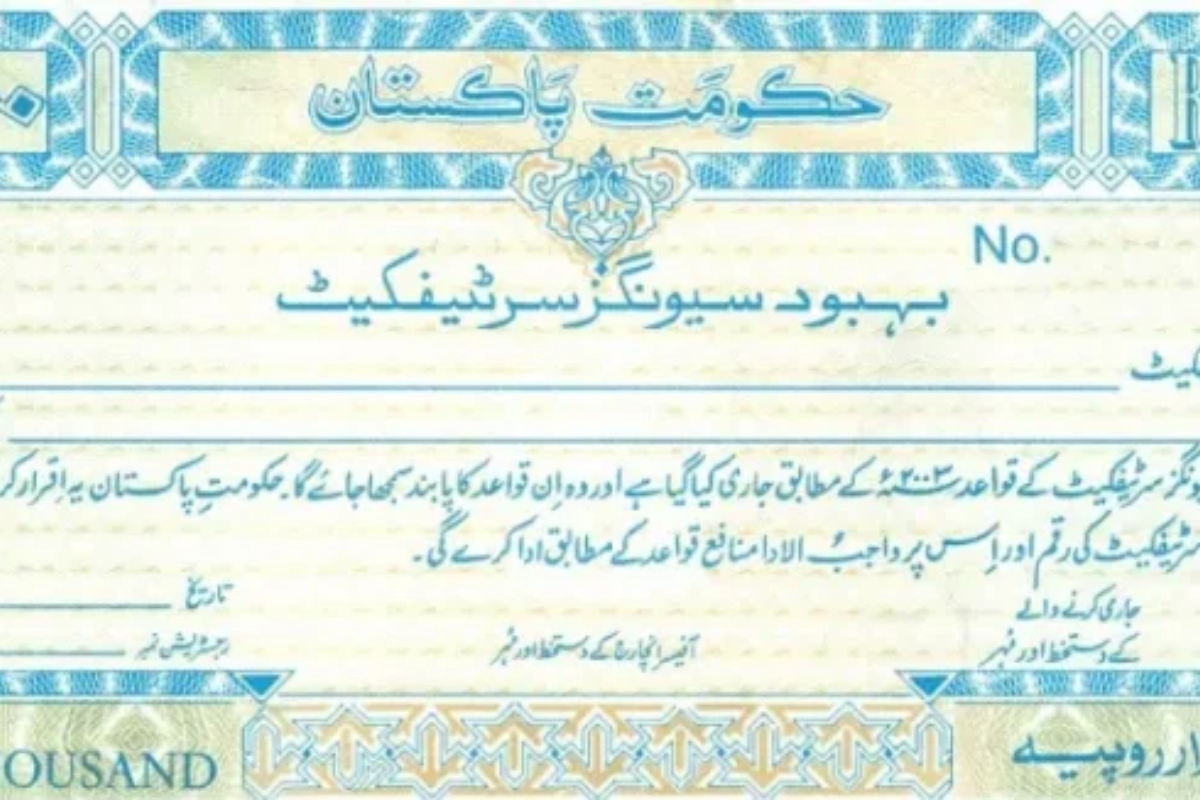 حکومت پاکستان
No.
بہبود سیونگز سرٹیفکیٹ
سرٹیفکیٹ کے قواعد ۲۰۰۳ء کے مطابق جاری کیا گیا ہے اور وہ اِن قواعد کا پابند سمجھا جائے گا۔ حکومتِ پاکستان یہ اقرار
سرٹیفکیٹ کی رقم اور اِس پر واجبُ الادا منافع قواعد کے مطابق ادا کرے گی۔
جاری کرنے والے
تاریخ
کے دستخط اور مُہر
آفیسر انچارج کے دستخط اور مُہر
رجسٹریشن نمبر
روپیہ
OUSAND